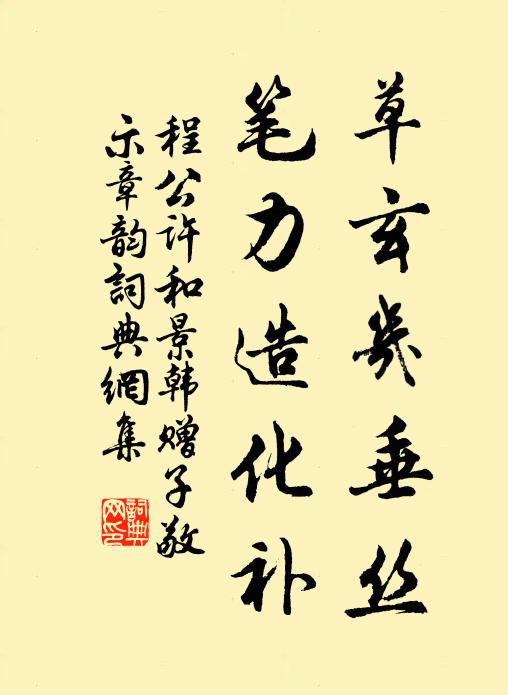 草玄幾垂丝
笔力造化补
程公许和景韩赠子敬
示章韵詞典網集
詞典网印